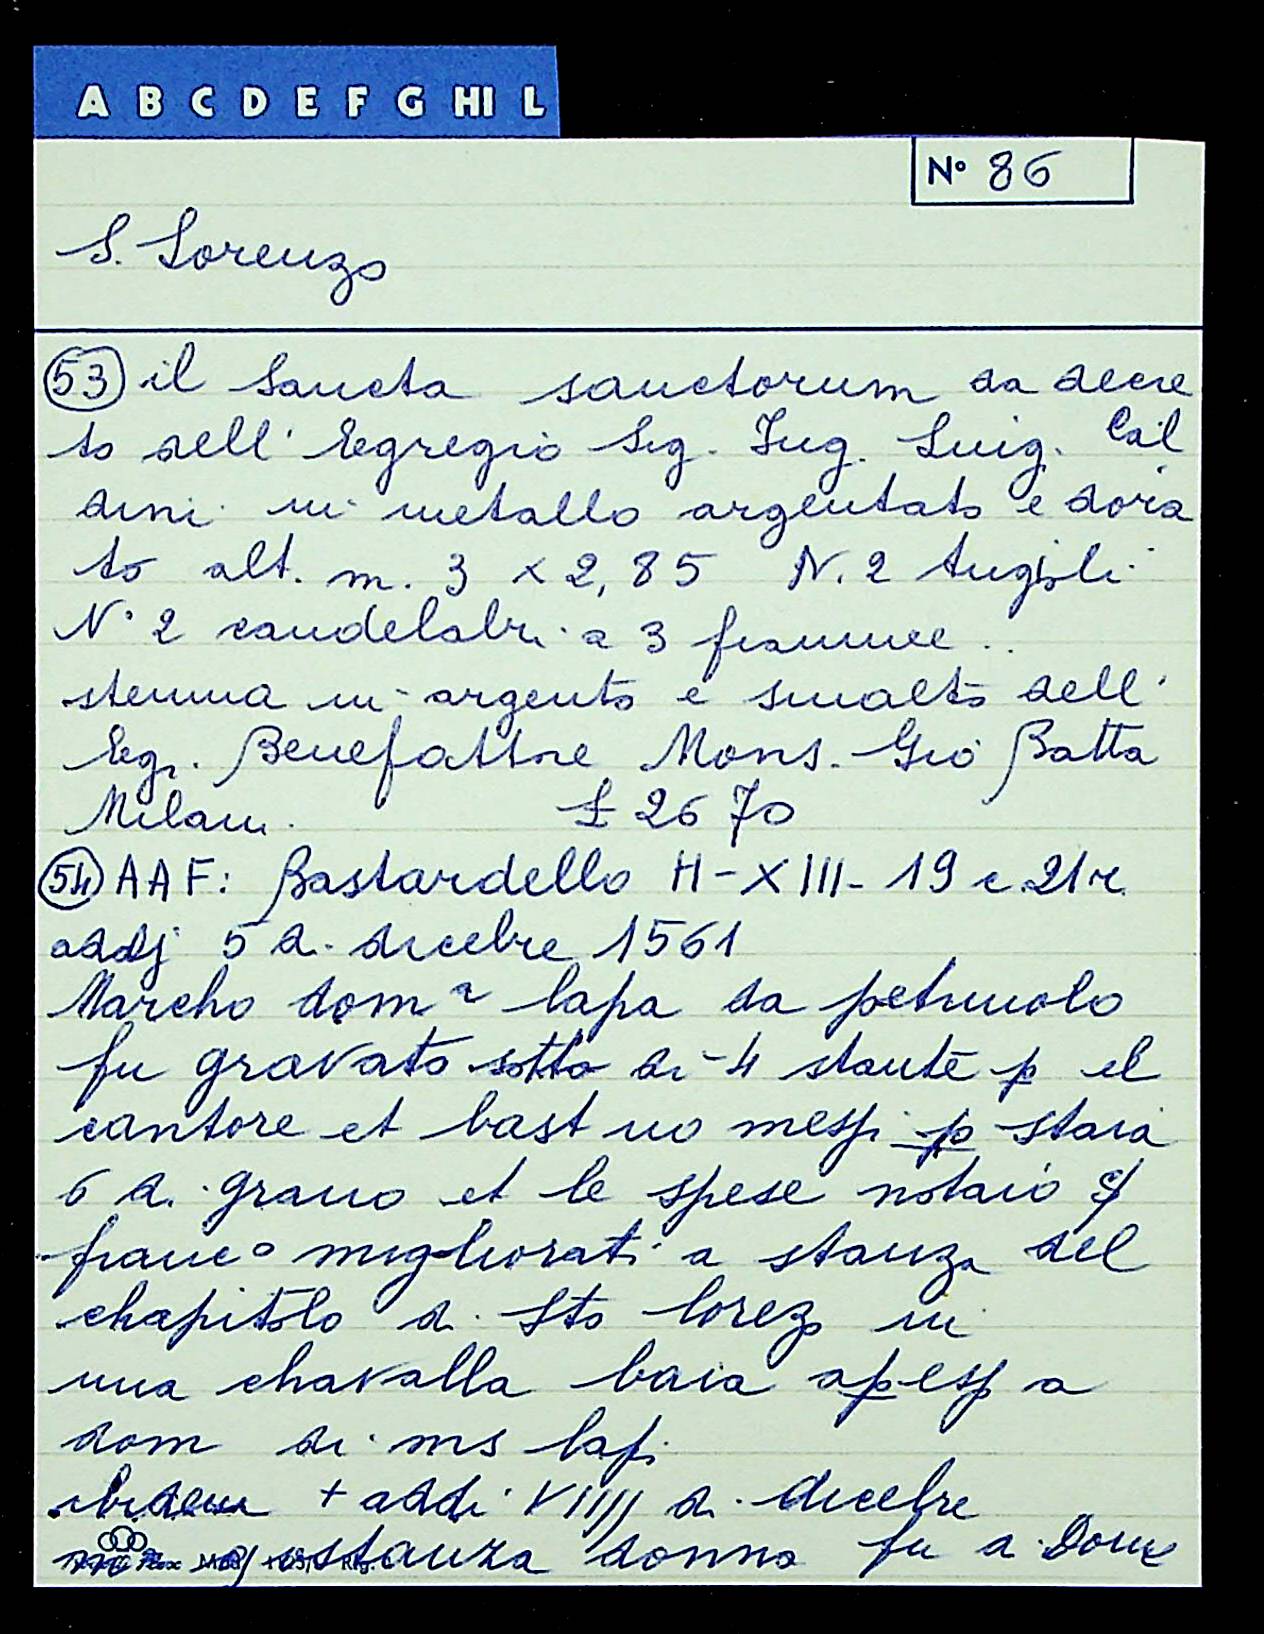 A B C D E F G HI L
Nº 86
S. Lorenzo
53 il Sancta sanctorum da decre
to dell' Egregio Sig. Ing. Luig. Cal
dini in metallo argentato e dora
to alt. m. 3 x 2,85 N. 2 Angioli
N. 2 candelabri a 3 fiamme..
stemma in argento e smalto dell'
Eg. Benefattore Mons. Gio Batta
Milani. £ 2670
54 AAF: Bastardello H-XIII-19 c.21r.
addj 5 d. dicebre 1561
Marcho domᵃ lapa da petruolo
fu gravato sotto di 4 stante p el
cantore et bast no messi p staia
6 d. grano et le spese notaio
francº migliorati a stanza del
chapitolo d. Sto lorezo in
una chavalla baia apesp a
dom di ms lapi
ibidem + addi VIIIJ d. dicebre
stanza donno fu a